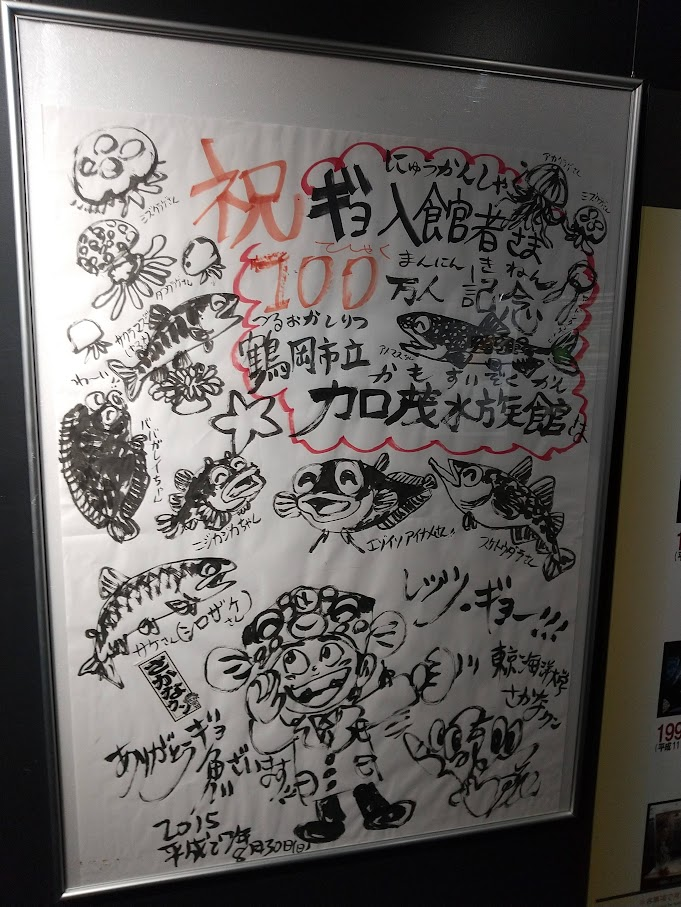 祝
ギョ入館者さま
にゅうかんしゃ
アカクラゲさん
ミズクラゲさん
ミズクラゲさん
100万人記念
まんにん きねん
つるおかしりつ
鶴岡市立
かもすいぞくかん
加茂水族館
わーい
ババガレイちゃん
ニジカジカちゃん
エゾイソアイナメさん
スケトウダラさん
サケさん(シロザケさん)
レッツ・ギョー!!!
東京海洋大学
さかなクン
さかなクン
ありがとうギョ
魚ざいます
2015
平成27年
8月30日(日)
199
(平成11